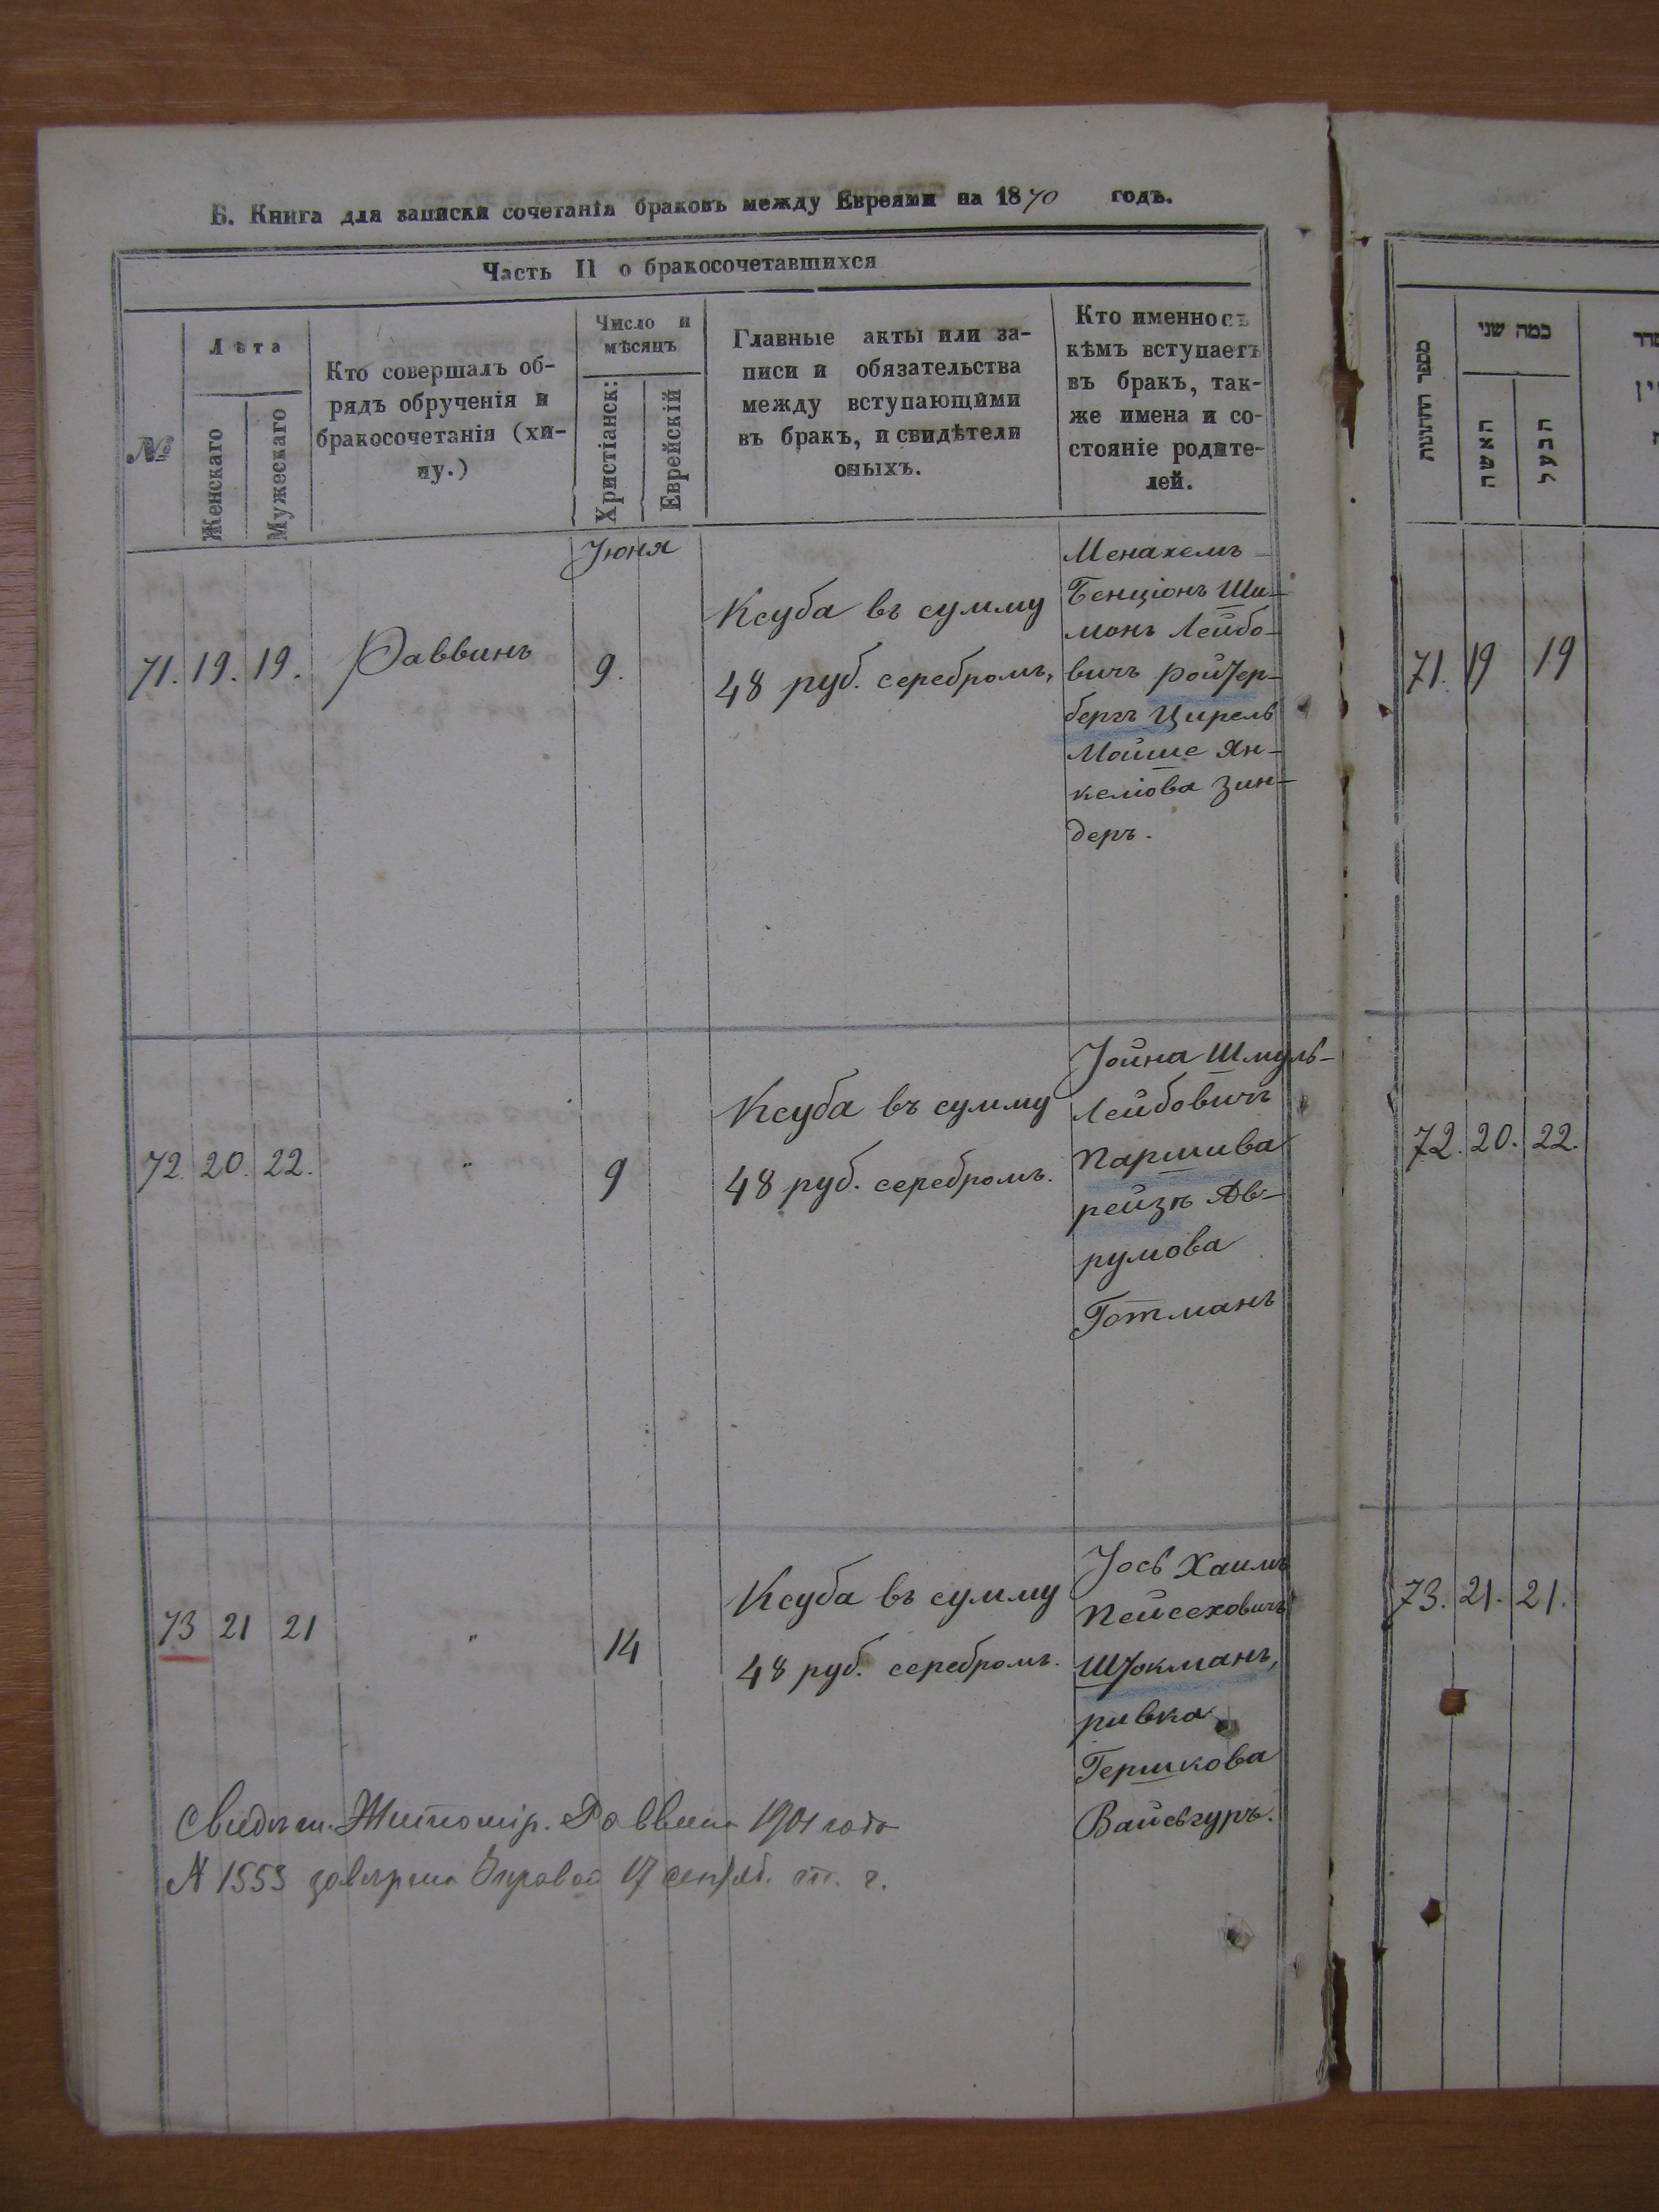 Б. Книга для записки сочетанія браковъ между Евреями на 1870 годъ.
Часть II о бракосочетавшихся
№
Лѣта
Женскаго
Мужескаго
Кто совершалъ об-
рядъ обрученія и
бракосочетанія (хи-
пу.)
Число и
мѣсяцъ
Христіанск:
Еврейскій
Главные акты или за-
писи и обязательства
между вступающими
въ бракъ, и свидѣтели
оныхъ.
Кто именно съ
кѣмъ вступаетъ
въ бракъ, так-
же имена и со-
стояніе родите-
лей.
Іюня
71. 19. 19. Раввинъ 9.
Ксуба въ сумму
48 руб. серебромъ,
Менахемъ
Бенціонъ Ши-
монъ Лейбо-
вичъ Ройтер-
бергъ Цирель
Мойше Ян-
келіова Зин-
деръ.
72. 20. 22. " 9
Ксуба въ сумму
48 руб. серебромъ.
Іойна Шмуль-
Лейбовичъ
Паршива
рейзя Ав-
румова
Готманъ
73 21 21 " 14
Ксуба въ сумму
48 руб. серебромъ.
Іось Хаимъ
Пейсеховичъ
Штокманъ,
ривка
Гершкова
Вайсьгуръ.
Свидѣт. Житомір. Раввина 1901 года
№ 1553 завѣрена Управой 17 сентяб. т. г.
מספר החתונות
כמה שני
האשה
הבעל
71. 19 19
72. 20. 22.
73. 21. 21.